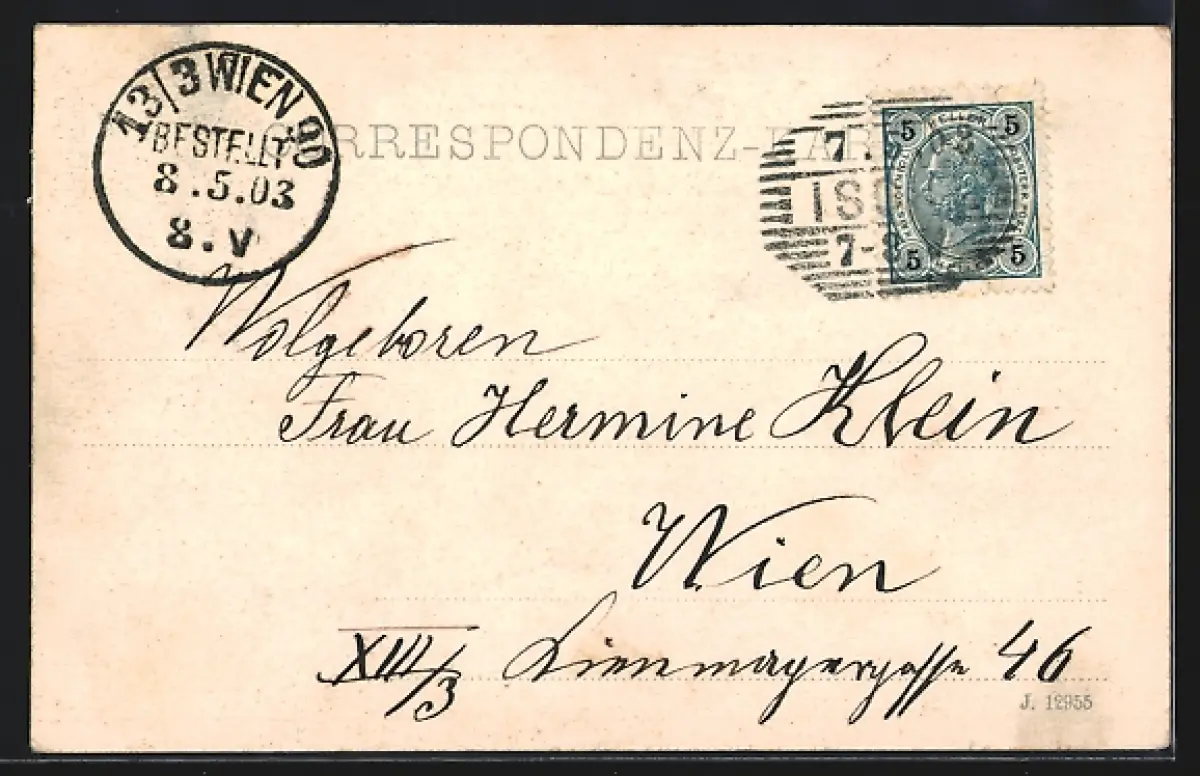 13/3 WIEN 90
BESTELLT
8.5.03
8.V
CORRESPONDENZ-KARTE
7. 03
ISCHL
7-8
5 HELLER 5
5 5
Wolgeboren
Frau Hermine Klein
Wien
XIII/3 Lienmayergasse 46
J. 12955